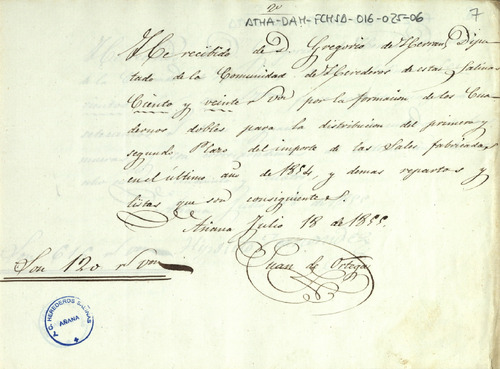 2º
ATHA-DAH-FCHSA-016-025-06
7
He recibido de D. Gregorio de Herran, Dipu-
tado de la Comunidad de Herederos de estas Salinas
Ciento y veinte r. von por la formacion de los Cua-
dernos dobles para la distribucion del primero y
segundo Plazo del importe de las Sales fabricadas
en el ultimo año de 1854 y demas repartos y
listas que son consiguientes.
Añana Julio 18 de 1855.
Juan de Ortega
Son 120 r von
C. HEREDEROS SALINAS
AÑANA